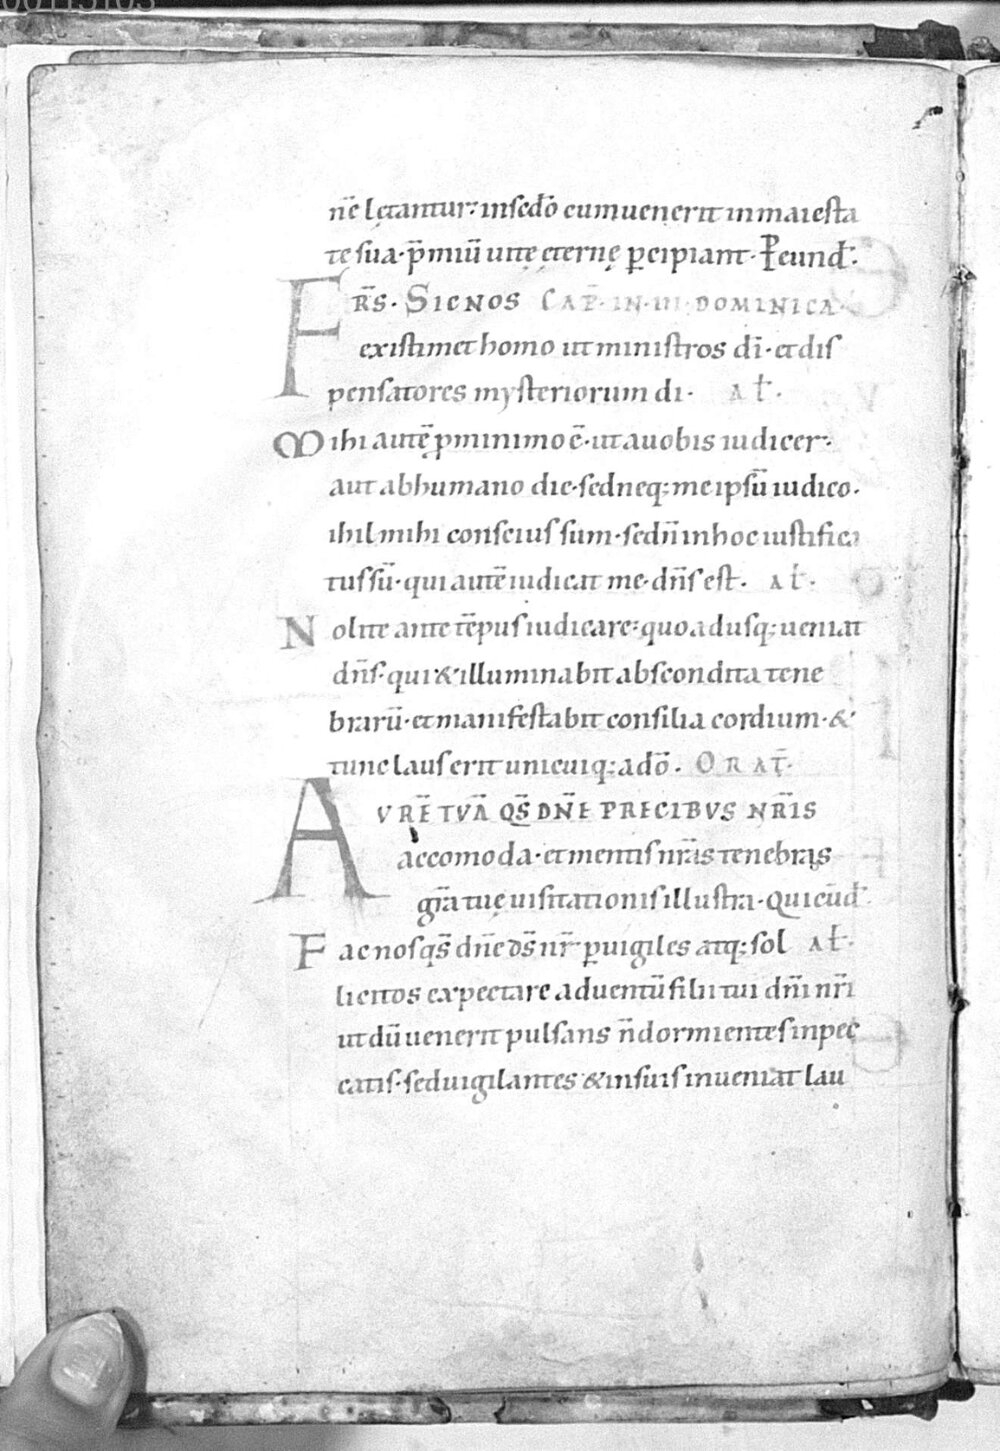 00113103
nē lętantur: insedo̅ cumuenerit inmaiesta
tę sua· p̅miū uitę eternę p̲cipiant· P̲eund̅·
FRS̅· SICNOS CAP̅· IN· III· DOMINICA·
existimet homo ut ministros dī· et dis
pensatores mysteriorum di· AL̅·
Mihi autē p̲minimo ē· ut auobis iudicer·
aut abhumano die· sedneq; me ipsū iudico·
ihil mihi conscius sum· sedn̅ inhoc iustifica
tus sū· qui autē iudicat me· dn̅s est· AL̅·
Nolite ante tēpus iudicare: quo adusq; ueniat
dn̅s· qui & illuminabit abscondita tene
brarū· et manifestabit consilia cordium· &
tunc laus erit unicuiq; ado̅· ORAT̅·
AVRĒ TVĀ QS̅ DN̅E PRECIBVS NR̅IS
accomoda· et mentis nr̅as tenebrąs
gr̅a tuę uisitationis illustra· Qui cūd̅·
Fac nos qs̅ dn̅e ds̅ nr̅ p̲uigiles atq; sol AL̅·
licitos expectare aduentū filii tui dn̅i nr̅i
ut dū uenerit pulsans n̅ dormientes inpec
catis· sed uigilantes & insuis inueniat lau